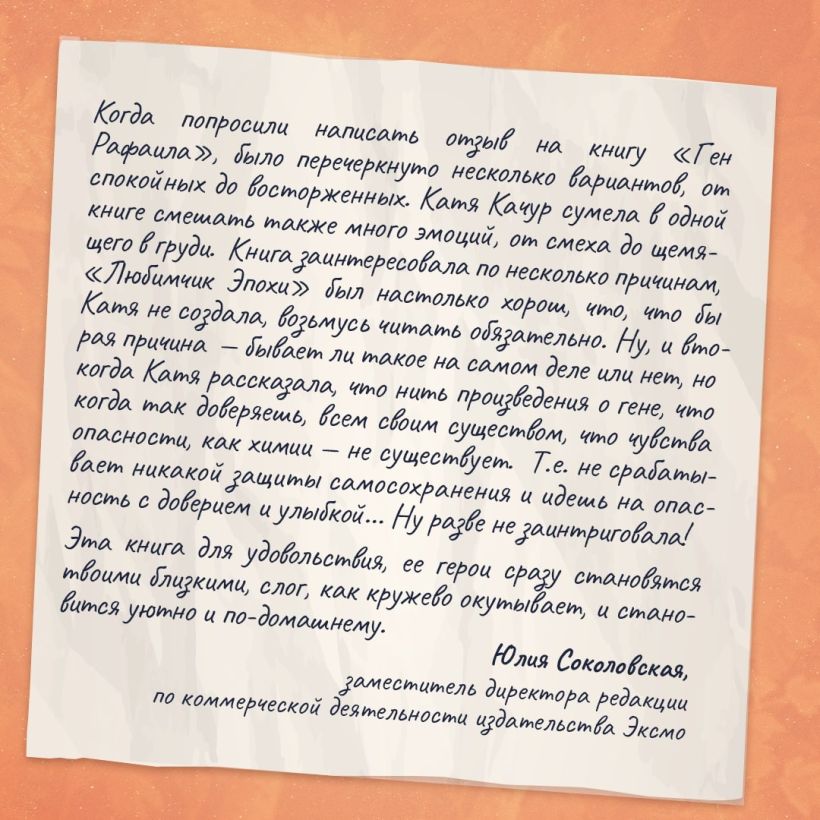 Когда попросили написать отзыв на книгу «Ген
Рафаила», было перечеркнуто несколько вариантов, от
спокойных до восторженных. Катя Качур сумела в одной
книге смешать также много эмоций, от смеха до щемя-
щего в груди. Книга заинтересовала по несколько причинам,
«Любимчик Эпохи» был настолько хорош, что, что бы
Катя не создала, возьмусь читать обязательно. Ну, и вто-
рая причина – бывает ли такое на самом деле или нет, но
когда Катя рассказала, что нить произведения о гене, что
когда так доверяешь, всем своим существом, что чувства
опасности, как химии – не существует. Т.е. не срабаты-
вает никакой защиты самосохранения и идешь на опас-
ность с доверием и улыбкой... Ну разве не заинтриговала!
Эта книга для удовольствия, ее герои сразу становятся
твоими близкими, слог, как кружево окутывает, и стано-
вится уютно и по-домашнему.
Юлия Соколовская,
заместитель директора редакции
по коммерческой деятельности издательства Эксмо